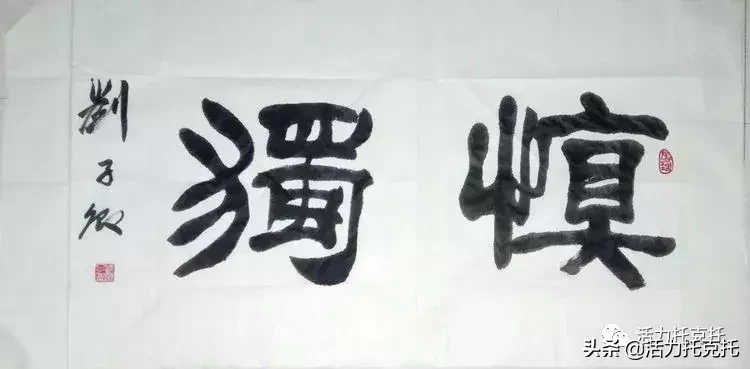 慎獨
劉子欽
活力托克托
头条@活力托克托